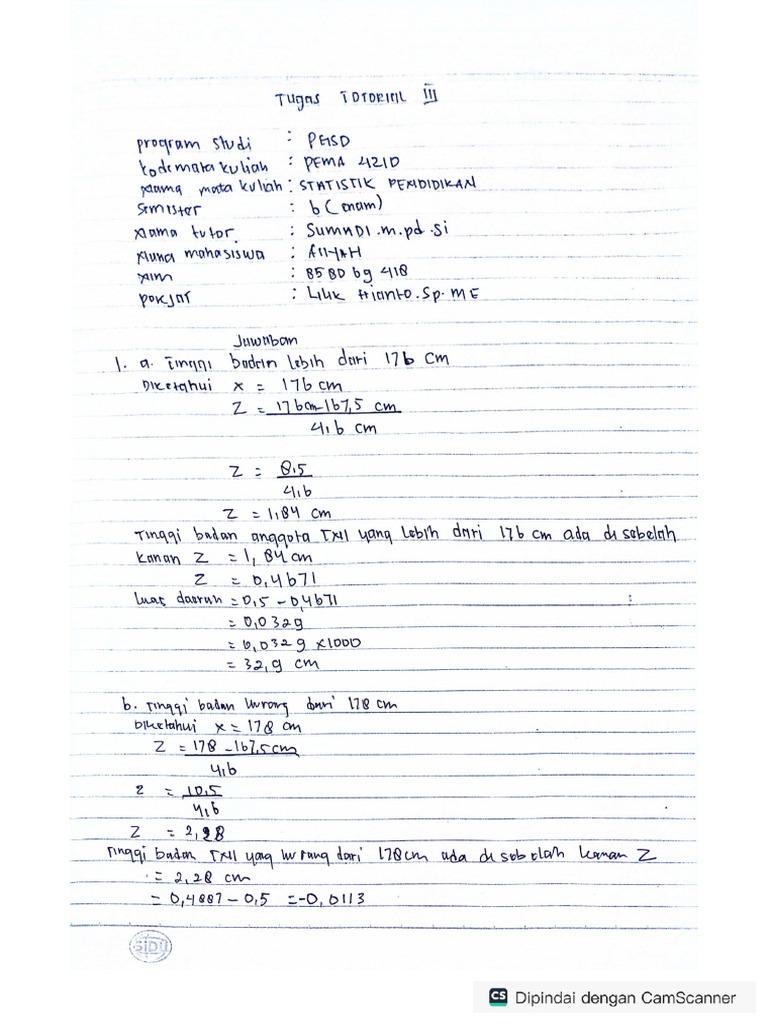 Tugas TUTORIAL III
program studi : PGSD
kode mata kuliah : PEMA 4210
Nama mata kuliah : STATISTIK PENDIDIKAN
Semester : 6 (enam)
Nama tutor : SUMADI.m.pd.si
Nama mahasiswa :
Nim : 858069418
pokjar : Lilik Hianto.Sp.ME
Jawaban
1. a. Tinggi badan lebih dari 176 cm
Diketahui x = 176 cm
Z = 176cm-167,5 cm
4,6 cm
Z = 8,5
4,6
Z = 1,84 cm
Tinggi badan anggota TNI yang lebih dari 176 cm ada di sebelah
kanan Z = 1,84 cm
Z = 0,4671
luas daerah = 0,5 - 0,4671
= 0,0329
= 0,0329 x1000
= 32,9 cm
b. Tinggi badan kurang dari 178 cm
Diketahui x = 178 cm
Z = 178 - 167,5 cm
4,6
Z = 10,5
4,6
Z = 2,28
Tinggi badan TNI yang kurang dari 178cm ada di sebelah kanan Z
= 2,28 cm
= 0,4887 - 0,5 = -0,0113
SIDU
CS Dipindai dengan CamScanner